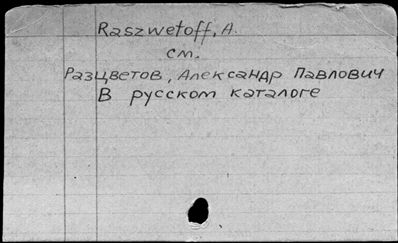 Raszwetoff, A.
см.
Разцветов, Александр Павлович
В русском каталоге